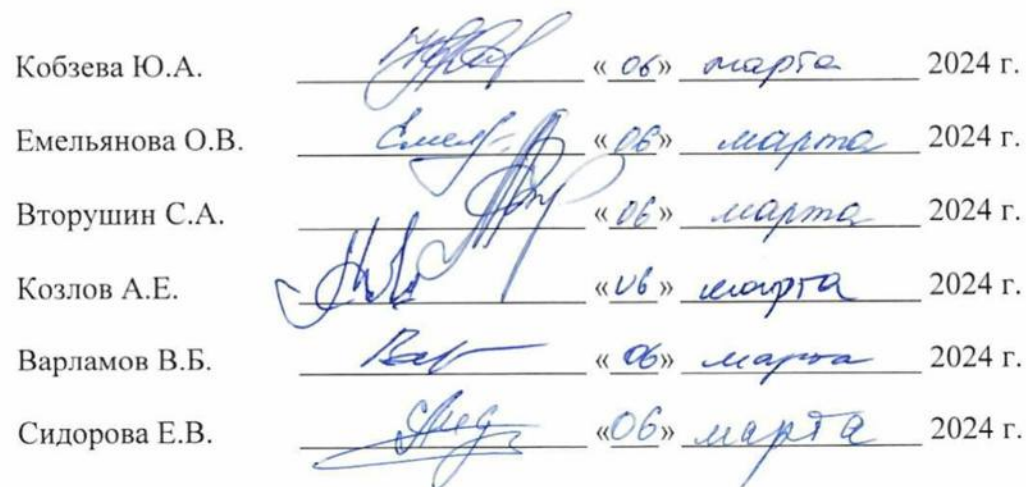 Кобзева Ю.А. «06» марта 2024 г.
Емельянова О.В. «06» марта 2024 г.
Вторушин С.А. «06» марта 2024 г.
Козлов А.Е. «06» марта 2024 г.
Варламов В.Б. «06» марта 2024 г.
Сидорова Е.В. «06» марта 2024 г.